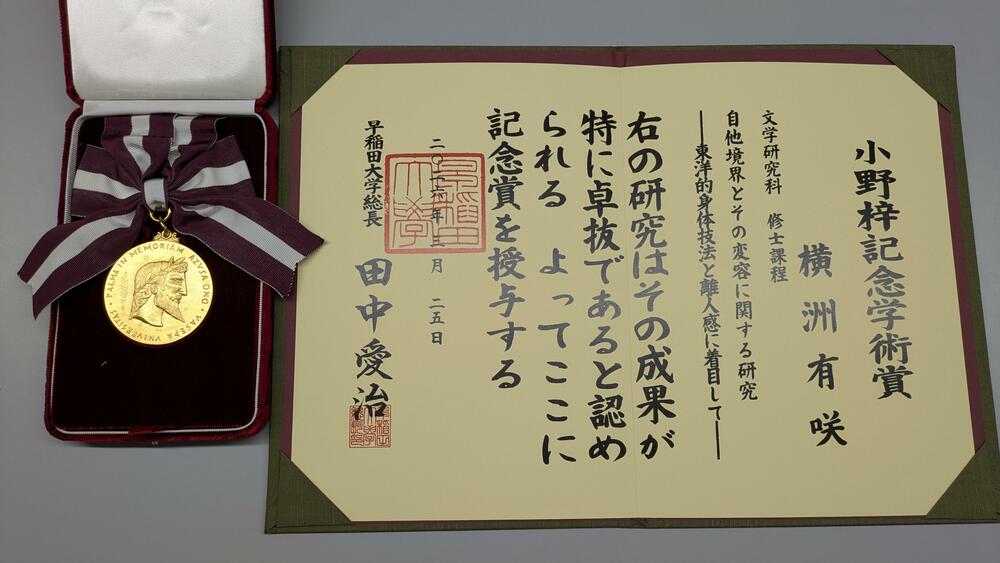 小野梓記念学術賞
横洲有咲
文学研究科 修士課程
自他境界とその変容に関する研究
―東洋的身体技法と離人感に着目して―
右の研究はその成果が
特に卓抜であると認め
られる よってここに
記念賞を授与する
二〇二六年 三月 二五日
早稲田大学総長
田中愛治
早稲田大学
PALMA IN MEMORIAM AZUSA ONO · UNIVERSITAS WASEDA